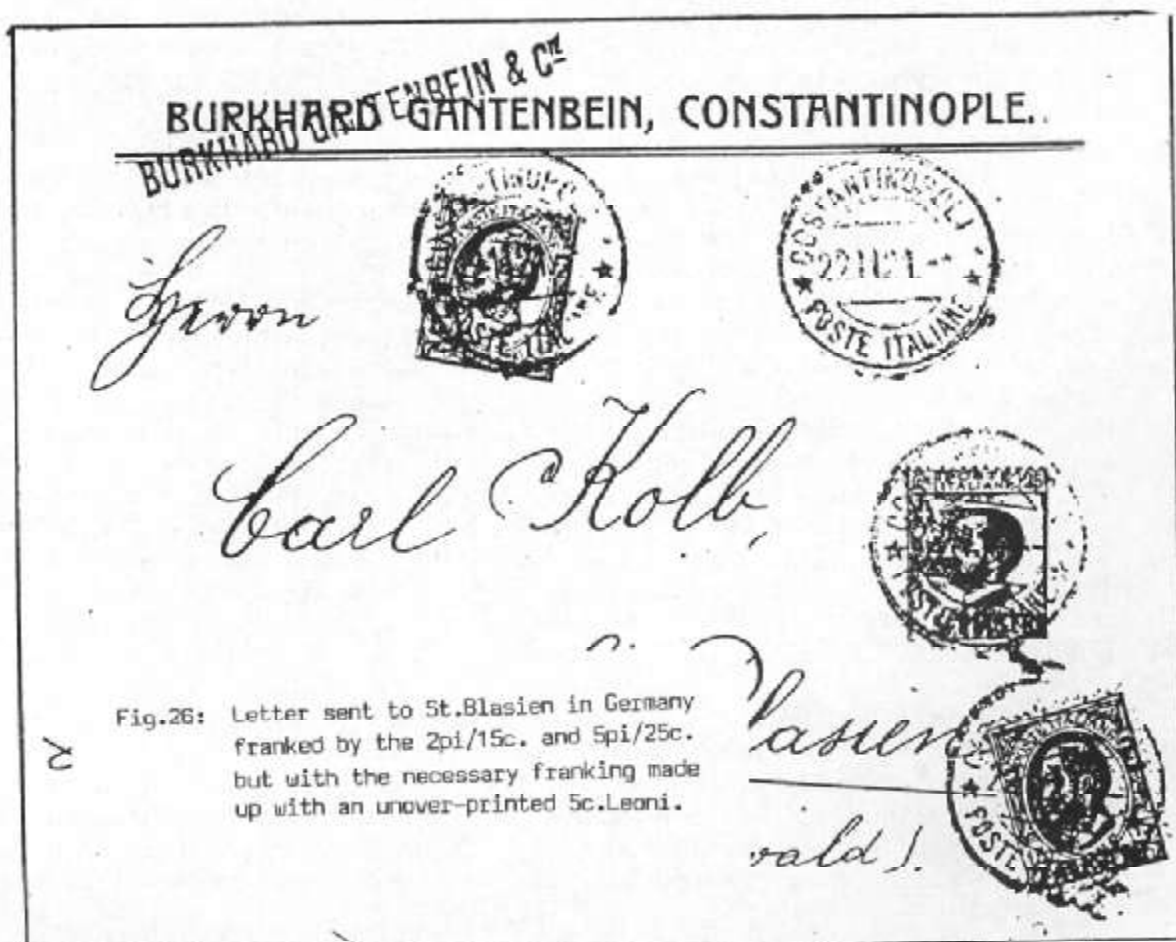 BURKHARD GANTENBEIN & Cie
BURKHARD GANTENBEIN, CONSTANTINOPLE.
COSTANTINOPOLI
22 11 21
POSTE ITALIANE
Herrn
Carl Kolb,
Blasien
wald).
POSTE
Fig.26: Letter sent to St.Blasien in Germany
franked by the 2pi/15c. and 5pi/25c.
but with the necessary franking made
up with an unover-printed 5c.Leoni.